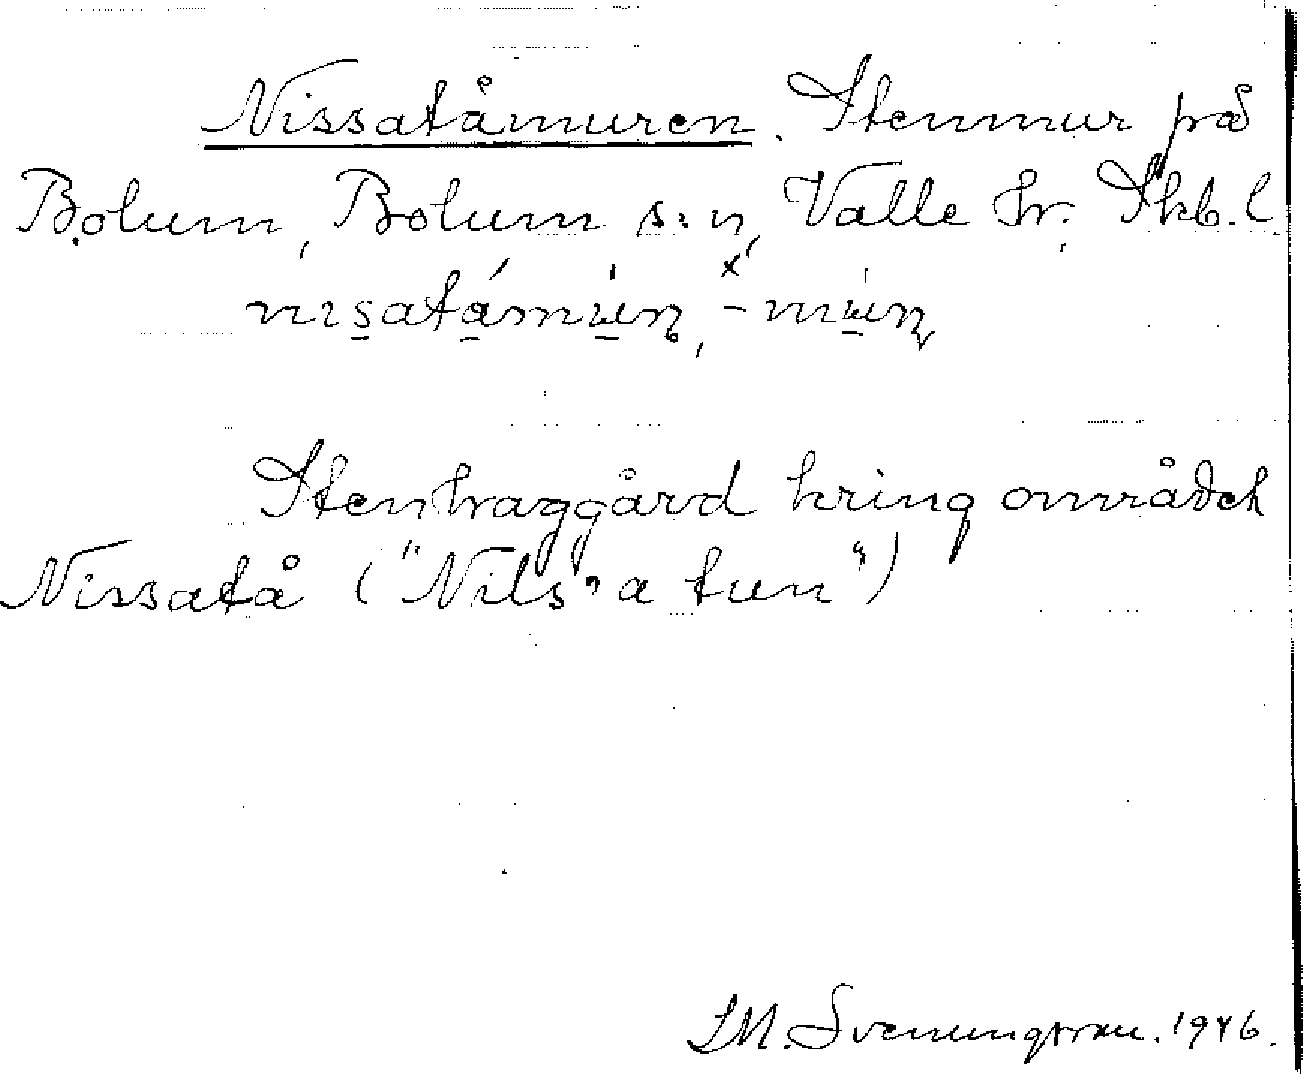 Nissatåmuren. Stenmur på
Bolum, Bolum s:n, Valle hr. Skb. l.
Stenhraggård kring området
Nissatå ("Nils' a tun")
S M. Svenungsson. 1946.